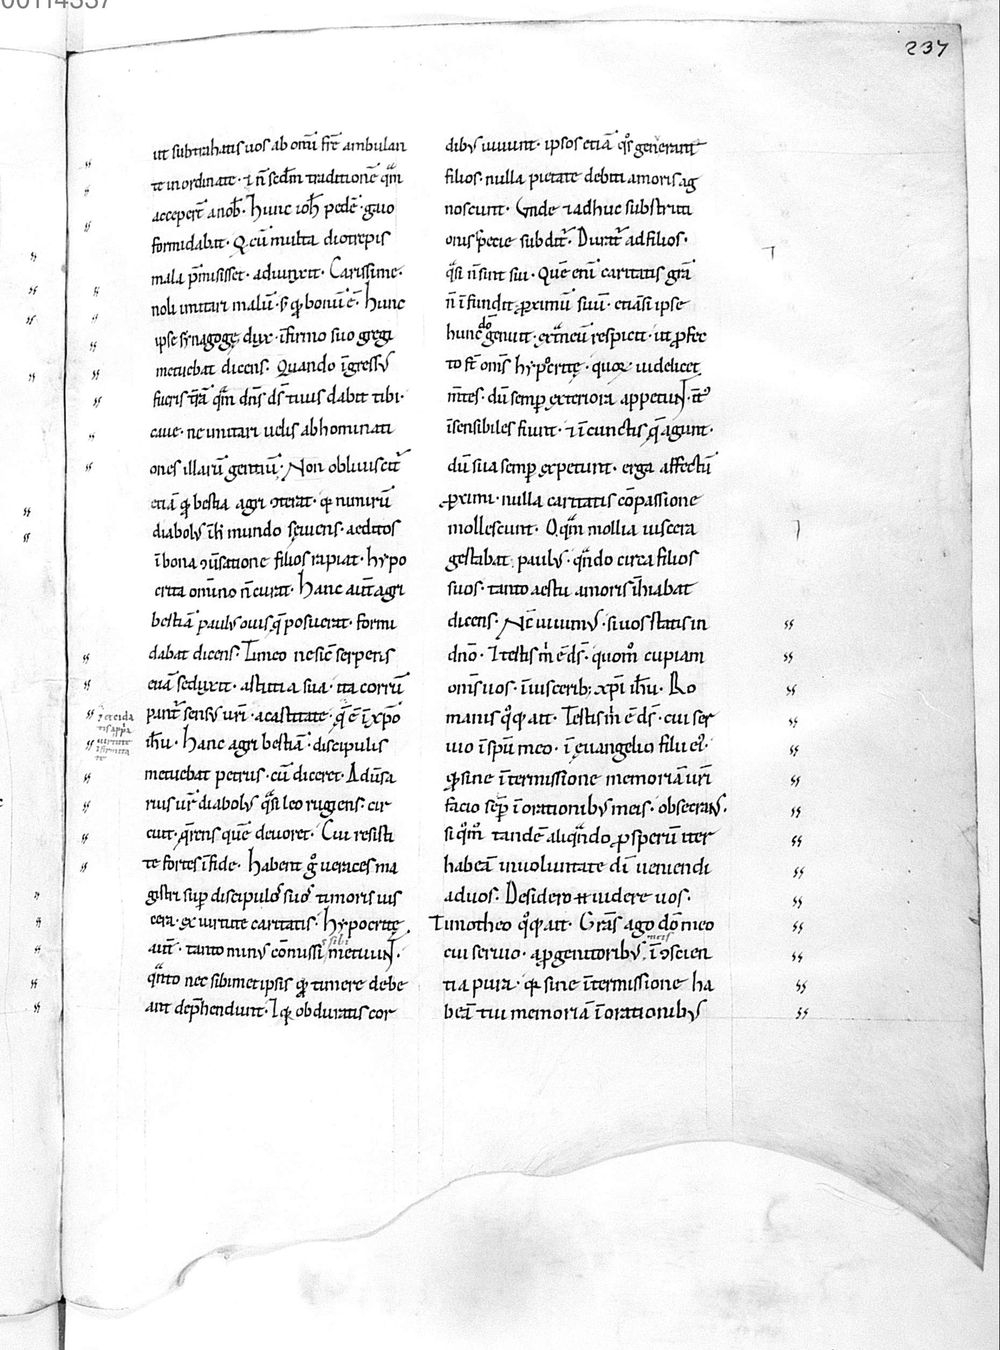 237
ut subtrahatis uos ab om̄i fr̄e ambulan
te inordinate · ⁊ n̄ sedm̄ traditionē quā
acceper̄t anob̄ · hunc ioh̄ pedē · gaio
formidabat · Qi cū multa diotrepis
mala p̄misisset · adiunxit · Carissime ·
noli imitari malū · s; qđ bonū ē · hunc
ipse synagogę dux · īfirmo suo gregi
metuebat dicens · Quando īgressus
fueris t̄rā quā dn̄s ds̄ tuus dabit tibi ·
caue · ne imitari uelis abhominati
ones illarū gentiū · Non obliuiscit̄
etiā qđ bestia agri ꝯterat · qa nimirū
diabolus īh mundo sęuiens · aeditos
ībona ꝯūsatione filios rapiat · hypo
crita om̄ino n̄ curat · hanc aut̄ agri
bestiā paulus ouis qs̄ posuerat · formi
dabat dicens · Timeo ne sic̄ serpens
euā seduxit · astutia sua · ita corrū
pant̄ sensus ur̄i · a castitate · q̄ ē ī xp̄o
ih̄u · hanc agri bestiā · discipulis
metuebat petrus · cū diceret · Aduersa
rius ur̄ diabolus quasi leo rugiens · cir
cuit · q̄rens quē deuoret · Cui resisti
te fortes īfide · habent g° ueraces ma
gistri suꝑ discipulos suos timoris uis
cera · ex uirtute caritatis · hypocritę
aut̄ · tanto minus cōmissis sibi metuunt ·
quanto nec sibimetipsis qđ timere debe
ant dep̄hendunt · Iqđ ob duratis cor
dibus uiuunt · ipsos etiā qos generant
filios · nulla pietate debiti amoris ag
noscunt · Unde ⁊ adhuc sub struti
onis specie subdit̄ · Durat̄ ad filios ·
quasi n̄ sint sui · Quē enī caritatis gr̄a
n̄ īfundit · ꝓximū suū · etiā si ipse
hunc dō genuit · extraneū respicit · ut ꝓfec
to st̄ om̄s hypocritę · quoꝝ uidelicet
m̄tes · dū semꝑ exteriora appetunt · it°
īsensibiles fiunt · ⁊ ī cunctis q̄ agunt ·
dū sua semꝑ expetunt · erga affectū
ꝓximi · nulla caritatis cōpassione
mollescunt · O quā mollia uiscera
gestabat paulus · quando circa filios
suos · tanto aestu amoris īhiabat
dicens · Nc̄ uiuimus · si uos statis in
dn̄o · ⁊ testis m̄ ē ds̄ · quom° cupiam
om̄s uos · īuiscerib; xp̄i ih̄u · Ro
manis qoqe ait · Testis m̄ ē ds̄ · cui ser
uio īspū meo · ī ęuangelio filii ei° ·
qđ sine īntermissione memoriā ur̄i
facio seꝑ īorationibus meis · obsecrans ·
si qom° tandē aliquando ꝓsperū iter
habeā inuoluntate dī ueniendi
aduos · Desidero n̄ uidere uos ·
Timotheo qoqe ait · Gr̄as ago dō meo
cui seruio · aꝓgenitoribus meis īꝯscien
tia pura · qđ sine īntermissione ha
beā tui memoriā īorationibus